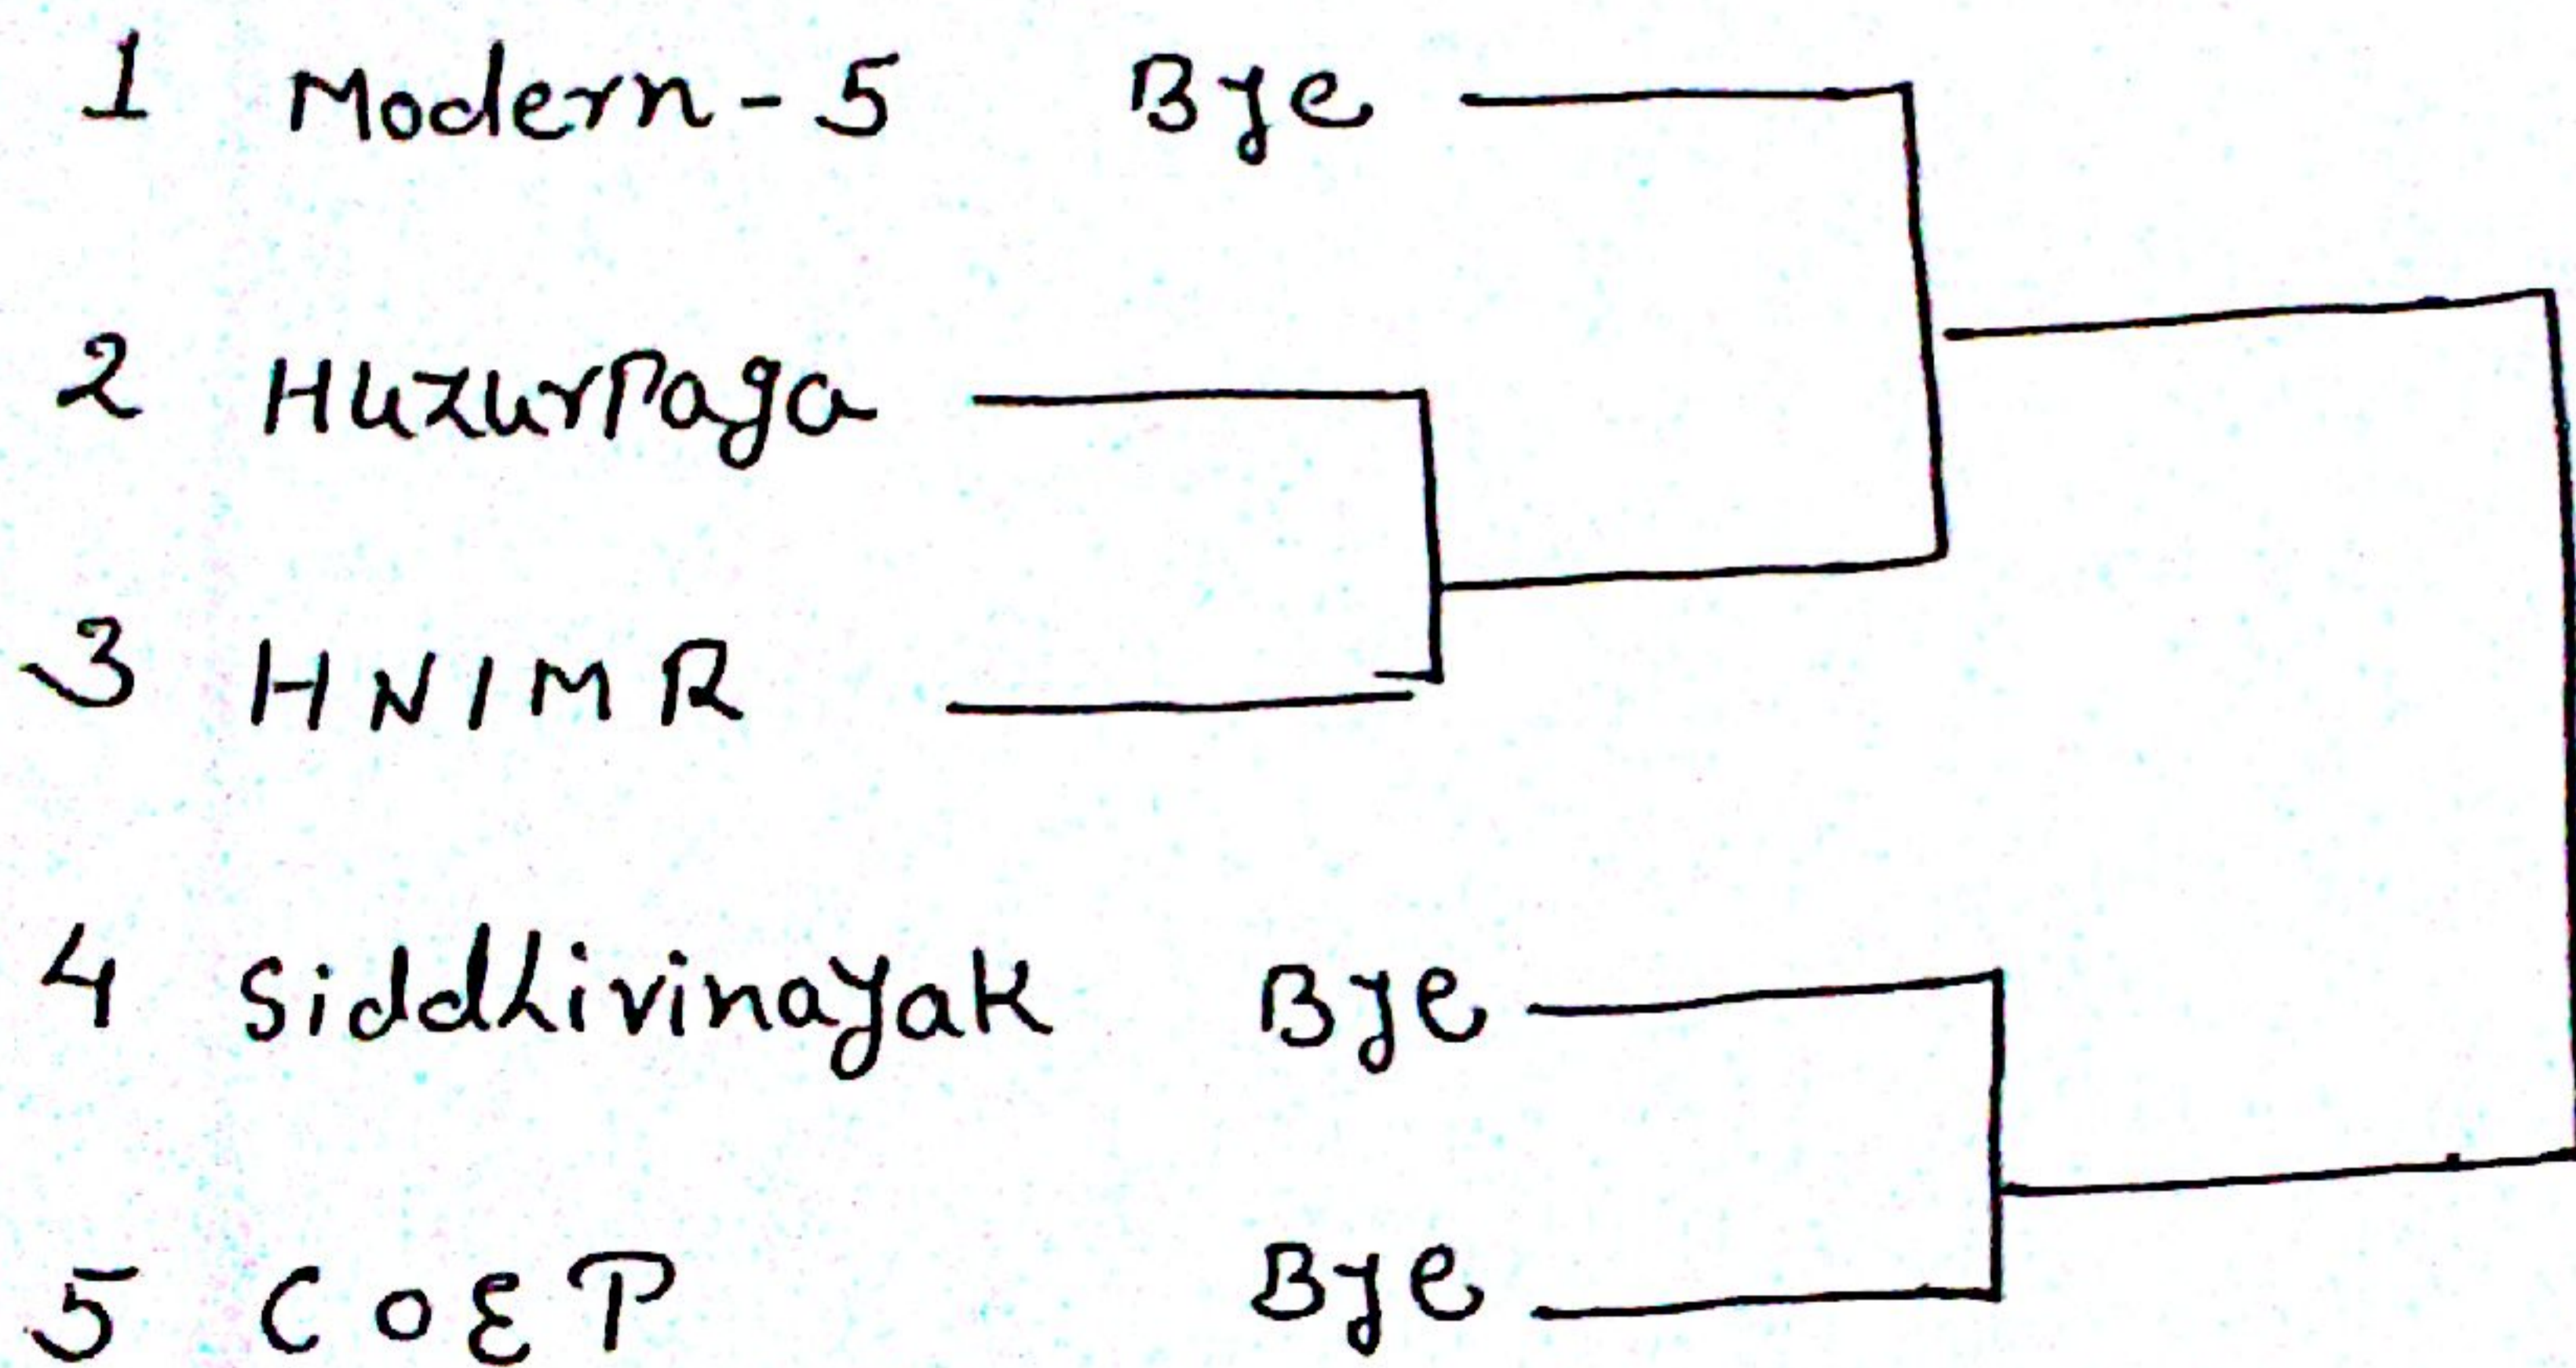 1 Modern-5 Bye
2 HuzurPaga
3 HNIMR
4 Siddhivinayak Bye
5 COEP Bye